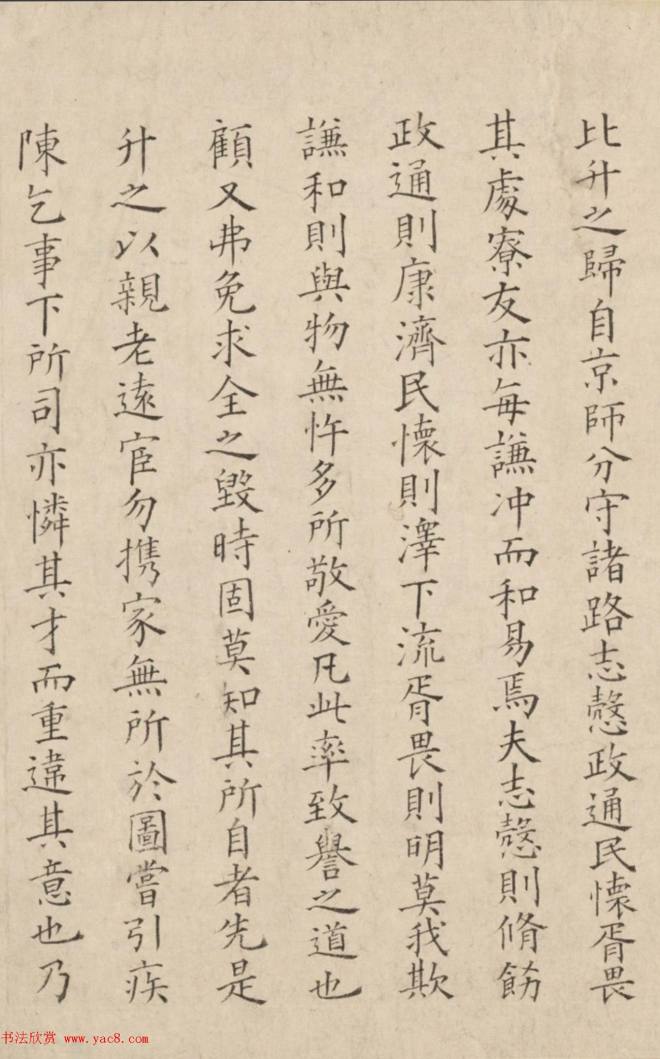 比升之歸自京師分守諸路志慤政通民懷胥畏
其處寮友亦每謙冲而和易焉夫志慤則脩飭
政通則康濟民懷則澤下流胥畏則明莫我欺
謙和則與物無忤多所敬愛凡此率致譽之道也
顧又弗免求全之毀時固莫知其所自者先是
升之以親老遠宦勿携家無所於圖嘗引疾
陳乞事下所司亦憐其才而重違其意也乃
书法欣赏 www.yac8.com